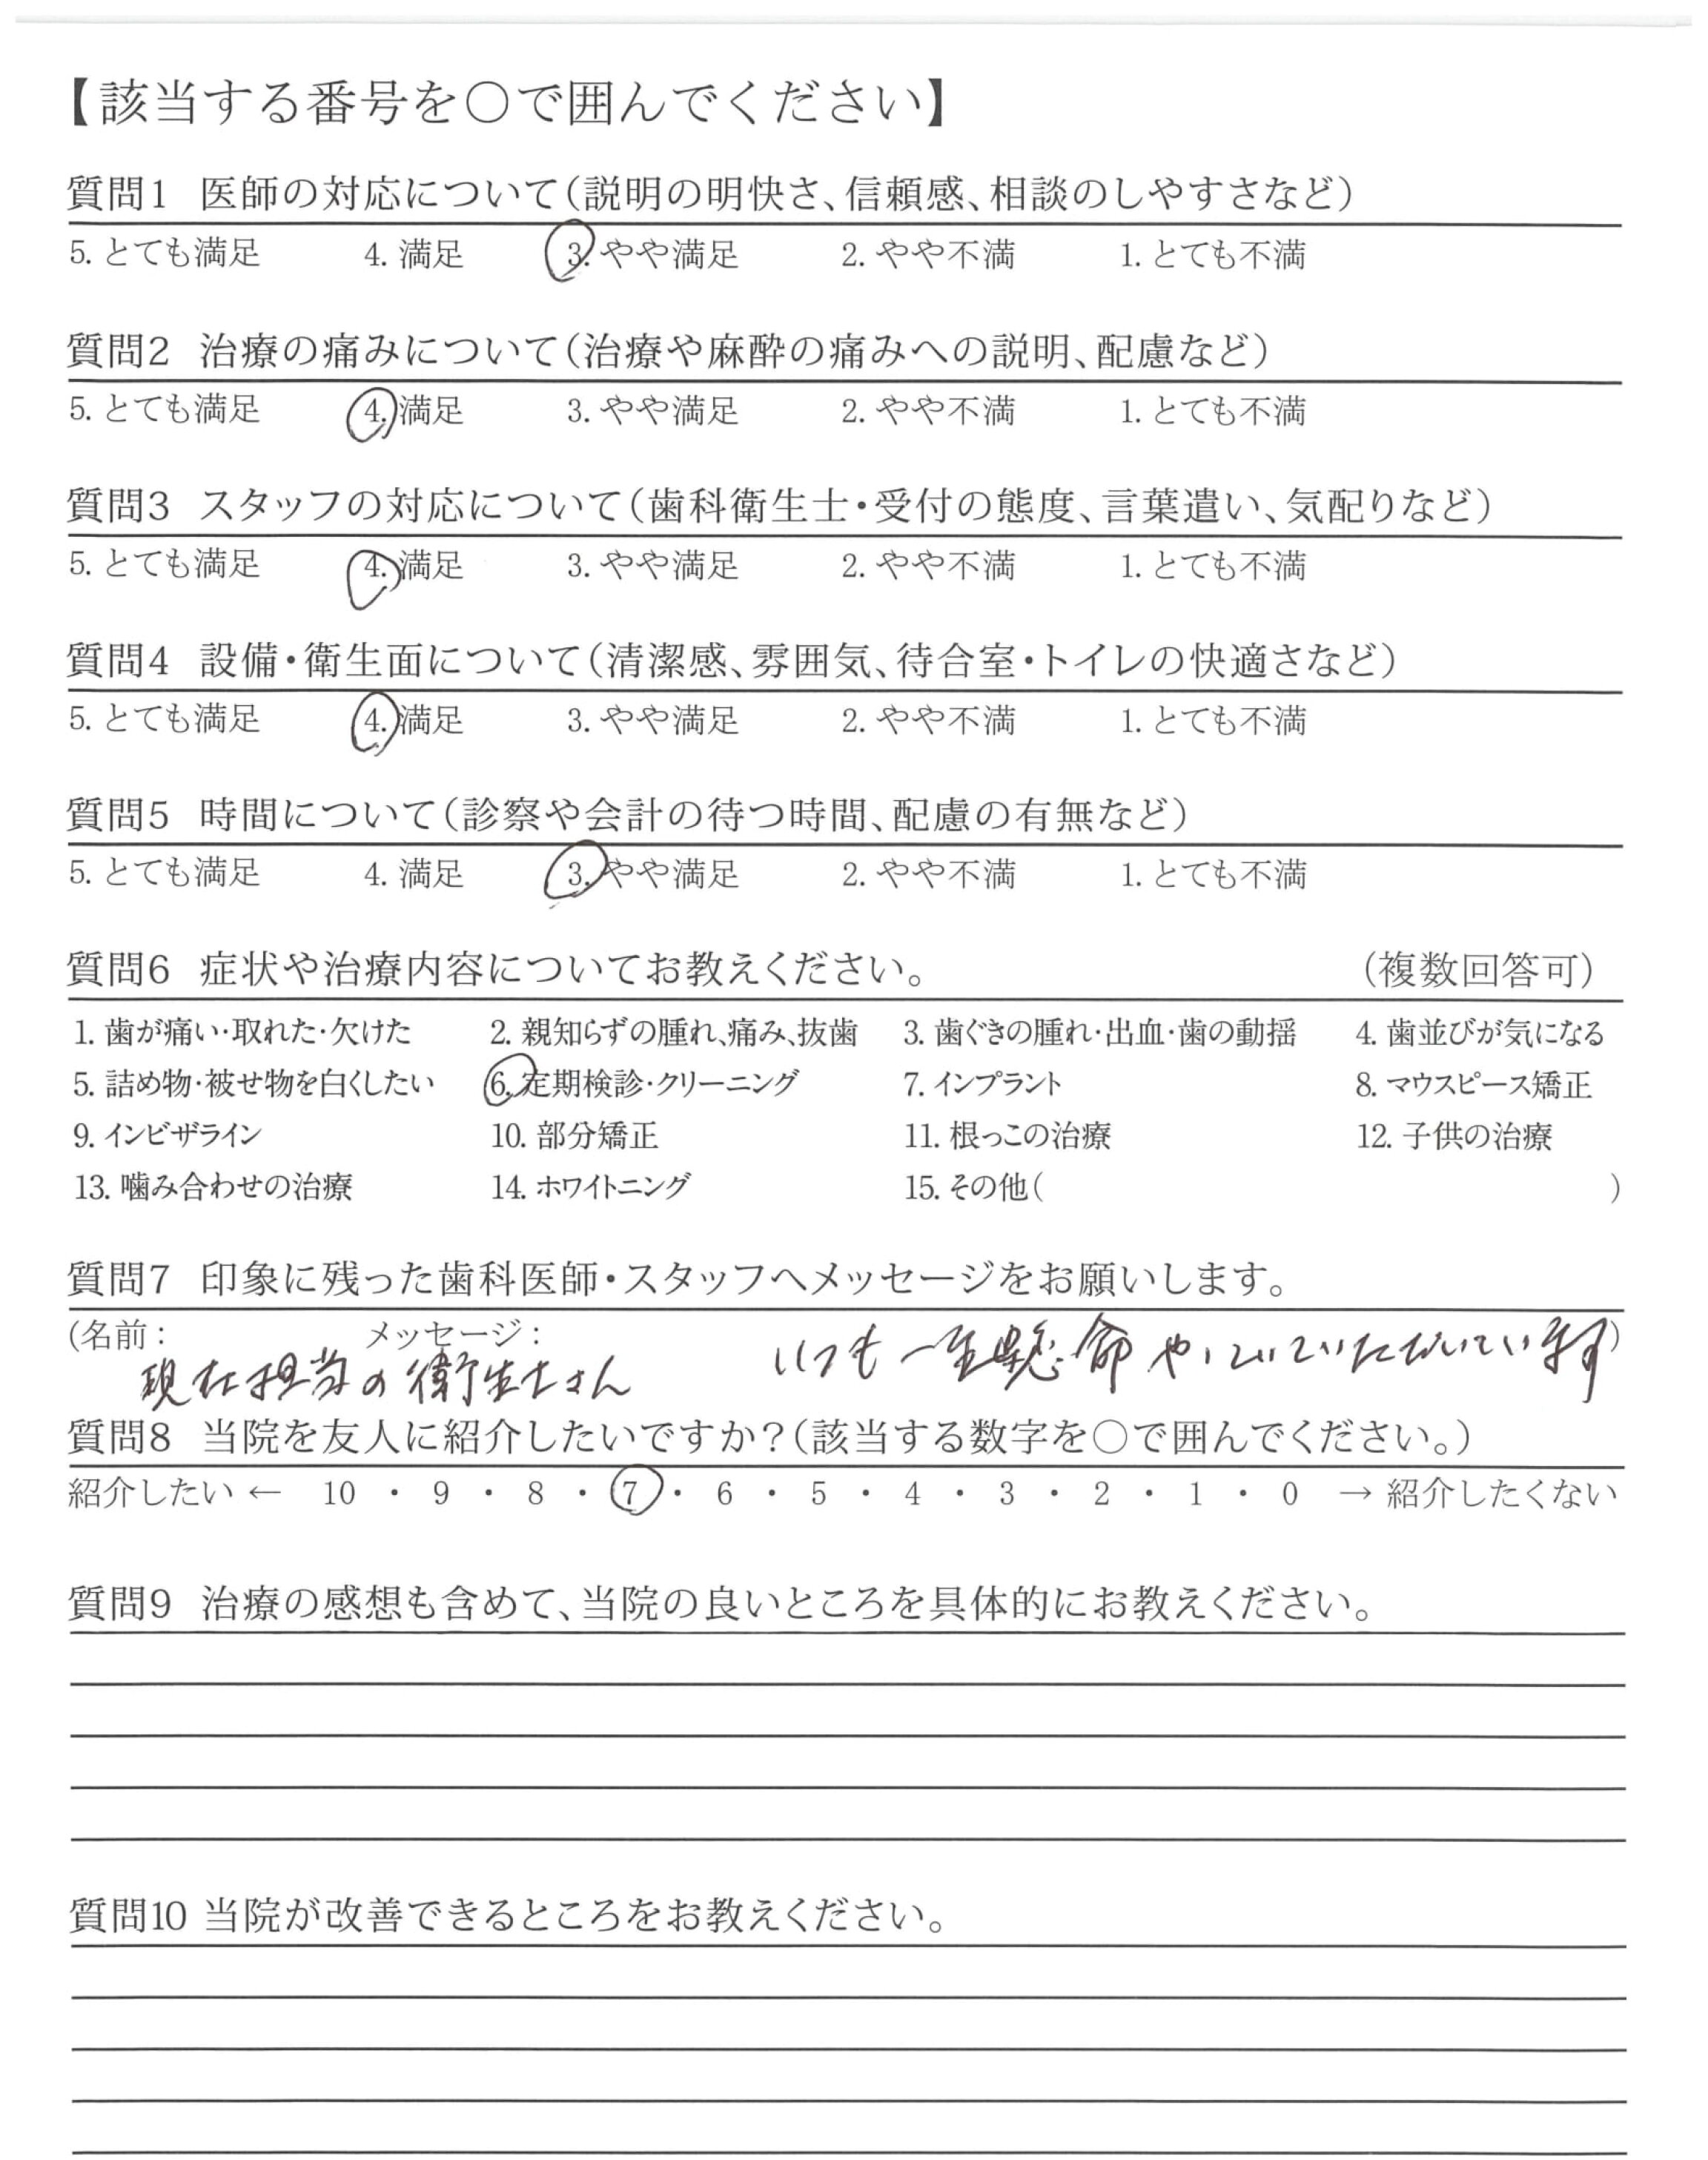 【該当する番号を○で囲んでください】
質問1 医師の対応について(説明の明快さ、信頼感、相談のしやすさなど)
5. とても満足 4. 満足 3. やや満足 2. やや不満 1. とても不満
質問2 治療の痛みについて(治療や麻酔の痛みへの説明、配慮など)
5. とても満足 4. 満足 3. やや満足 2. やや不満 1. とても不満
質問3 スタッフの対応について(歯科衛生士・受付の態度、言葉遣い、気配りなど)
5. とても満足 4. 満足 3. やや満足 2. やや不満 1. とても不満
質問4 設備・衛生面について(清潔感、雰囲気、待合室・トイレの快適さなど)
5. とても満足 4. 満足 3. やや満足 2. やや不満 1. とても不満
質問5 時間について(診察や会計の待つ時間、配慮の有無など)
5. とても満足 4. 満足 3. やや満足 2. やや不満 1. とても不満
質問6 症状や治療内容についてお教えください。 (複数回答可)
1. 歯が痛い・取れた・欠けた 2. 親知らずの腫れ、痛み、抜歯 3. 歯ぐきの腫れ・出血・歯の動揺 4. 歯並びが気になる
5. 詰め物・被せ物を白くしたい 6. 定期検診・クリーニング 7. インプラント 8. マウスピース矯正
9. インビザライン 10. 部分矯正 11. 根っこの治療 12. 子供の治療
13. 噛み合わせの治療 14. ホワイトニング 15. その他( )
質問7 印象に残った歯科医師・スタッフへメッセージをお願いします。
(名前: メッセージ: )
現在担当の衛生士さん いつも一生懸命やっていただいています
質問8 当院を友人に紹介したいですか?(該当する数字を○で囲んでください。)
紹介したい ← 10 ・ 9 ・ 8 ・ 7 ・ 6 ・ 5 ・ 4 ・ 3 ・ 2 ・ 1 ・ 0 → 紹介したくない
質問9 治療の感想も含めて、当院の良いところを具体的にお教えください。
質問10 当院が改善できるところをお教えください。